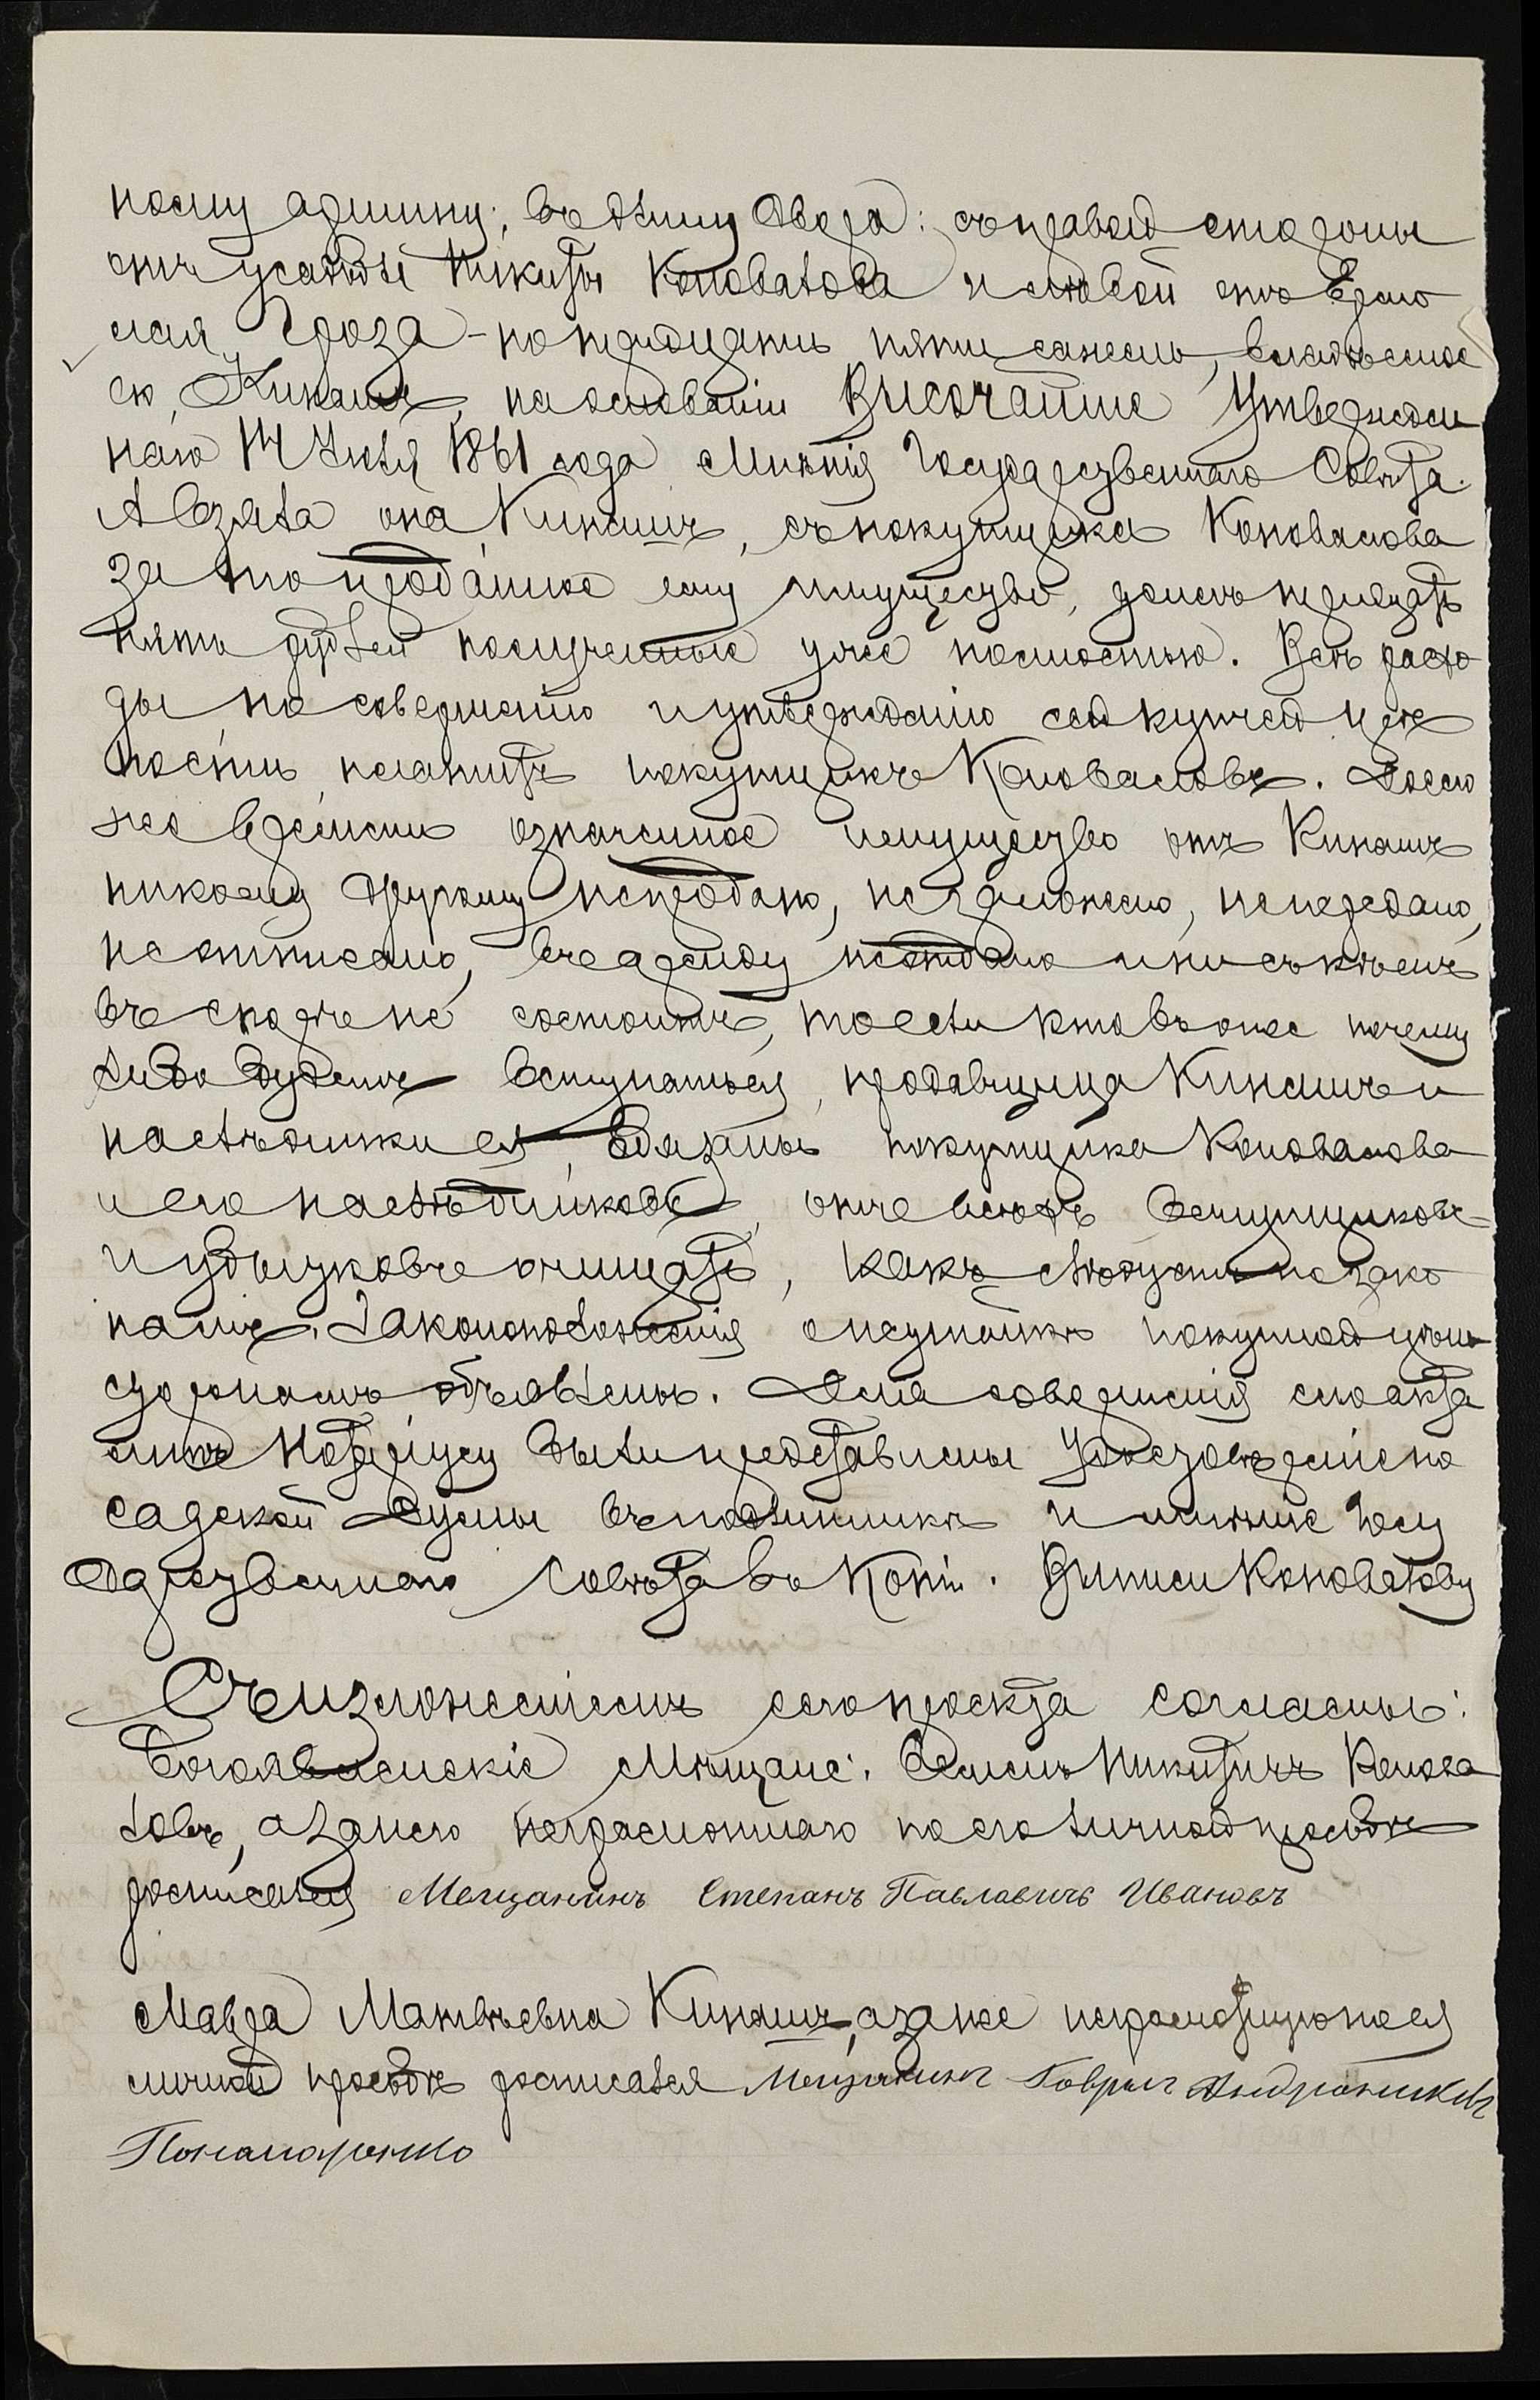 ному аршину; въ длину двора: съ правой стороны
отъ усадьбы Никиты Коновалова и левой отъ Ермо
лая Гроза - по тридцати пяти сажень, владѣемое
ею, Кинашъ, на основаніи Высочайше Утвержден
наго 14 Июля 1861 года Мнѣнія Государственнаго Совѣта.
А взяла она Кинашъ, съ покупщика Коновалова
за то проданное ему имущество, денегъ тридцать
пять рублей полученные уже полностью. Всѣ расхо
ды по совершенію и утвержденію сей купчей крѣ
пости, платитъ покупщикъ Коноваловъ. До сего
же времени означенное имущество отъ Кинашъ
никому другому не продано, не заложено, не передано,
не отписано, въ аренду не отдано и ни съ кѣмъ
въ спорѣ не состоитъ, то если кто въ оное почему
либо будетъ вступаться, продавщица Кинашъ и
наслѣдники ея, обязаны покупщика Коновалова
и его наслѣдниковъ, отъ всѣхъ вступщиковъ
и убытковъ очищать, какъ слѣдуетъ по зако
намъ. Законоположенія о неустойкѣ покупной цѣны
сторонамъ объявлены. Для совершенія сего акта
мнѣ Нотаріусу были представлены Удостовѣреніе по
садской Думы въ подлинникѣ и мнѣніе Госу
дарственнаго Совѣта въ Копіи. Выписи Коновалову
Съ изложеніемъ сего проекта согласны:
Богоявленскіе Мѣщане: Семенъ Никитичъ Конова
ловъ, а за него неграмотнаго по его личной просьбѣ
росписался Мещанинъ Степанъ Павлавичъ Ивановъ
Мавра Матвѣевна Кинашъ, а за нее неграмотную по ея
личной просьбѣ росписался Мещанинъ Гаврилъ Андрониковъ
Понамаренко